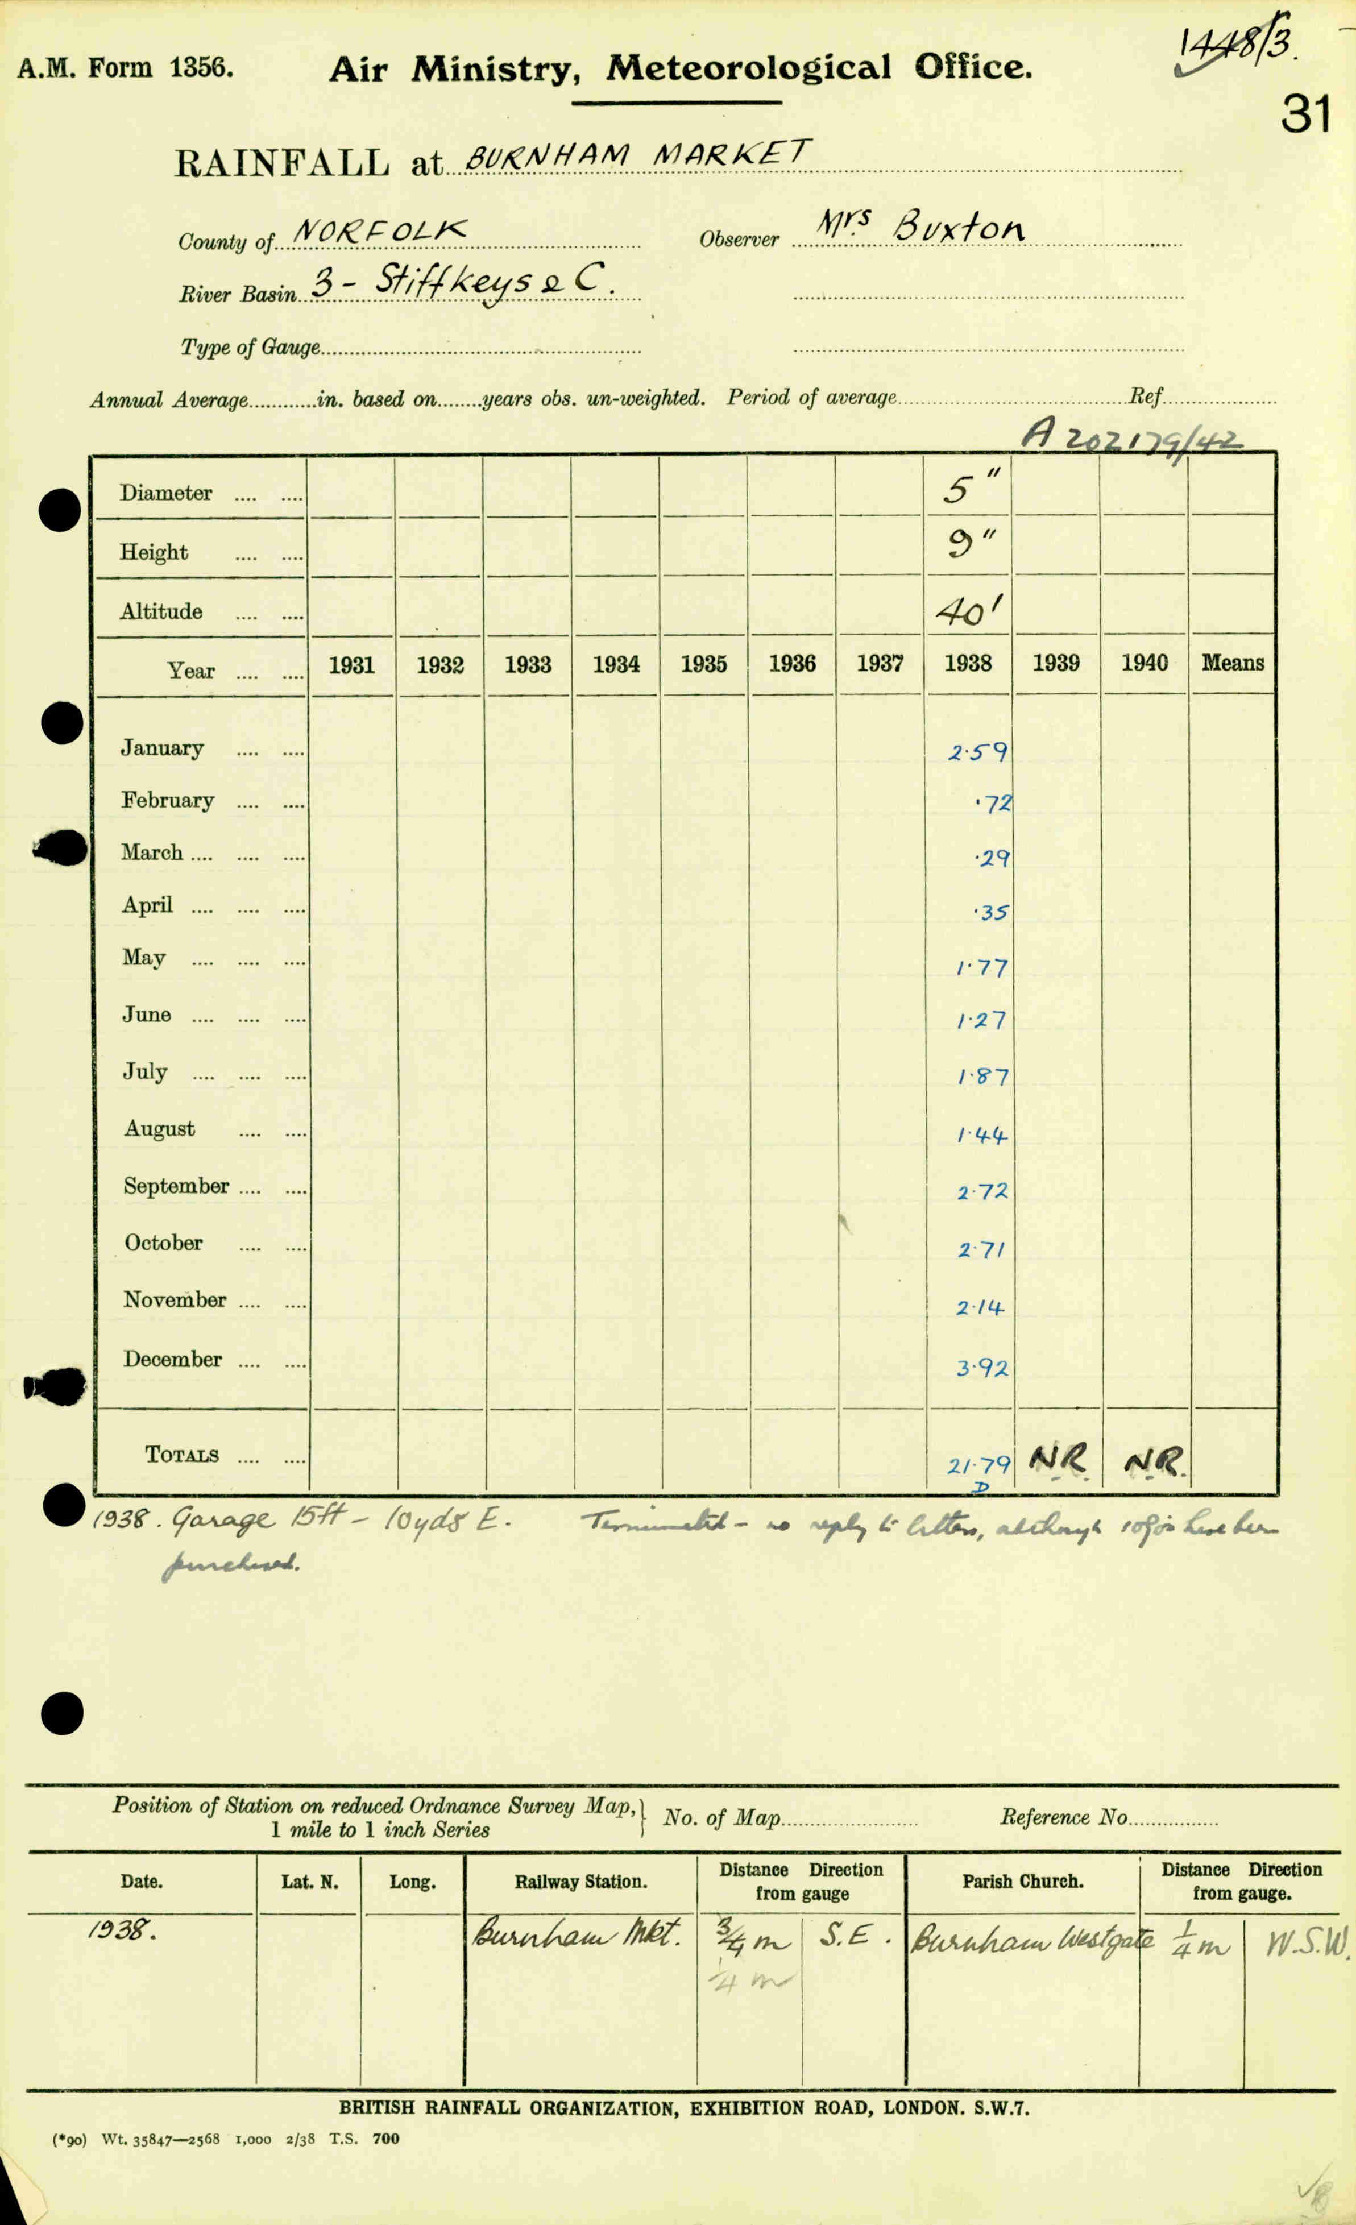 1448/3.
A.M. Form 1356. Air Ministry, Meteorological Office.
31
RAINFALL at BURNHAM MARKET
County of NORFOLK Observer Mrs Buxton
River Basin 3 - Stiffkeys & C.
Type of Gauge
Annual Average in. based on years obs. un-weighted. Period of average Ref
A 202179/42
Diameter 5"
Height 9"
Altitude 40'
Year 1931 1932 1933 1934 1935 1936 1937 1938 1939 1940 Means
January 2.59
February .72
March .29
April .35
May 1.77
June 1.27
July 1.87
August 1.44
September 2.72
October 2.71
November 2.14
December 3.92
TOTALS 21.79 NR NR.
D
1938. Garage 15ft - 10yds E. Terminated - no reply to letters, although have been
purchased.
Position of Station on reduced Ordnance Survey Map,} No. of Map Reference No.
1 mile to 1 inch Series
Date. Lat. N. Long. Railway Station. Distance Direction from gauge Parish Church. Distance Direction from gauge.
1938. Burnham Mkt. 3/4 m S.E. Burnham Westgate 1/4 m W.S.W.
1/4 m
BRITISH RAINFALL ORGANIZATION, EXHIBITION ROAD, LONDON. S.W.7.
(*90) Wt. 35847—2568 1,000 2/38 T.S. 700